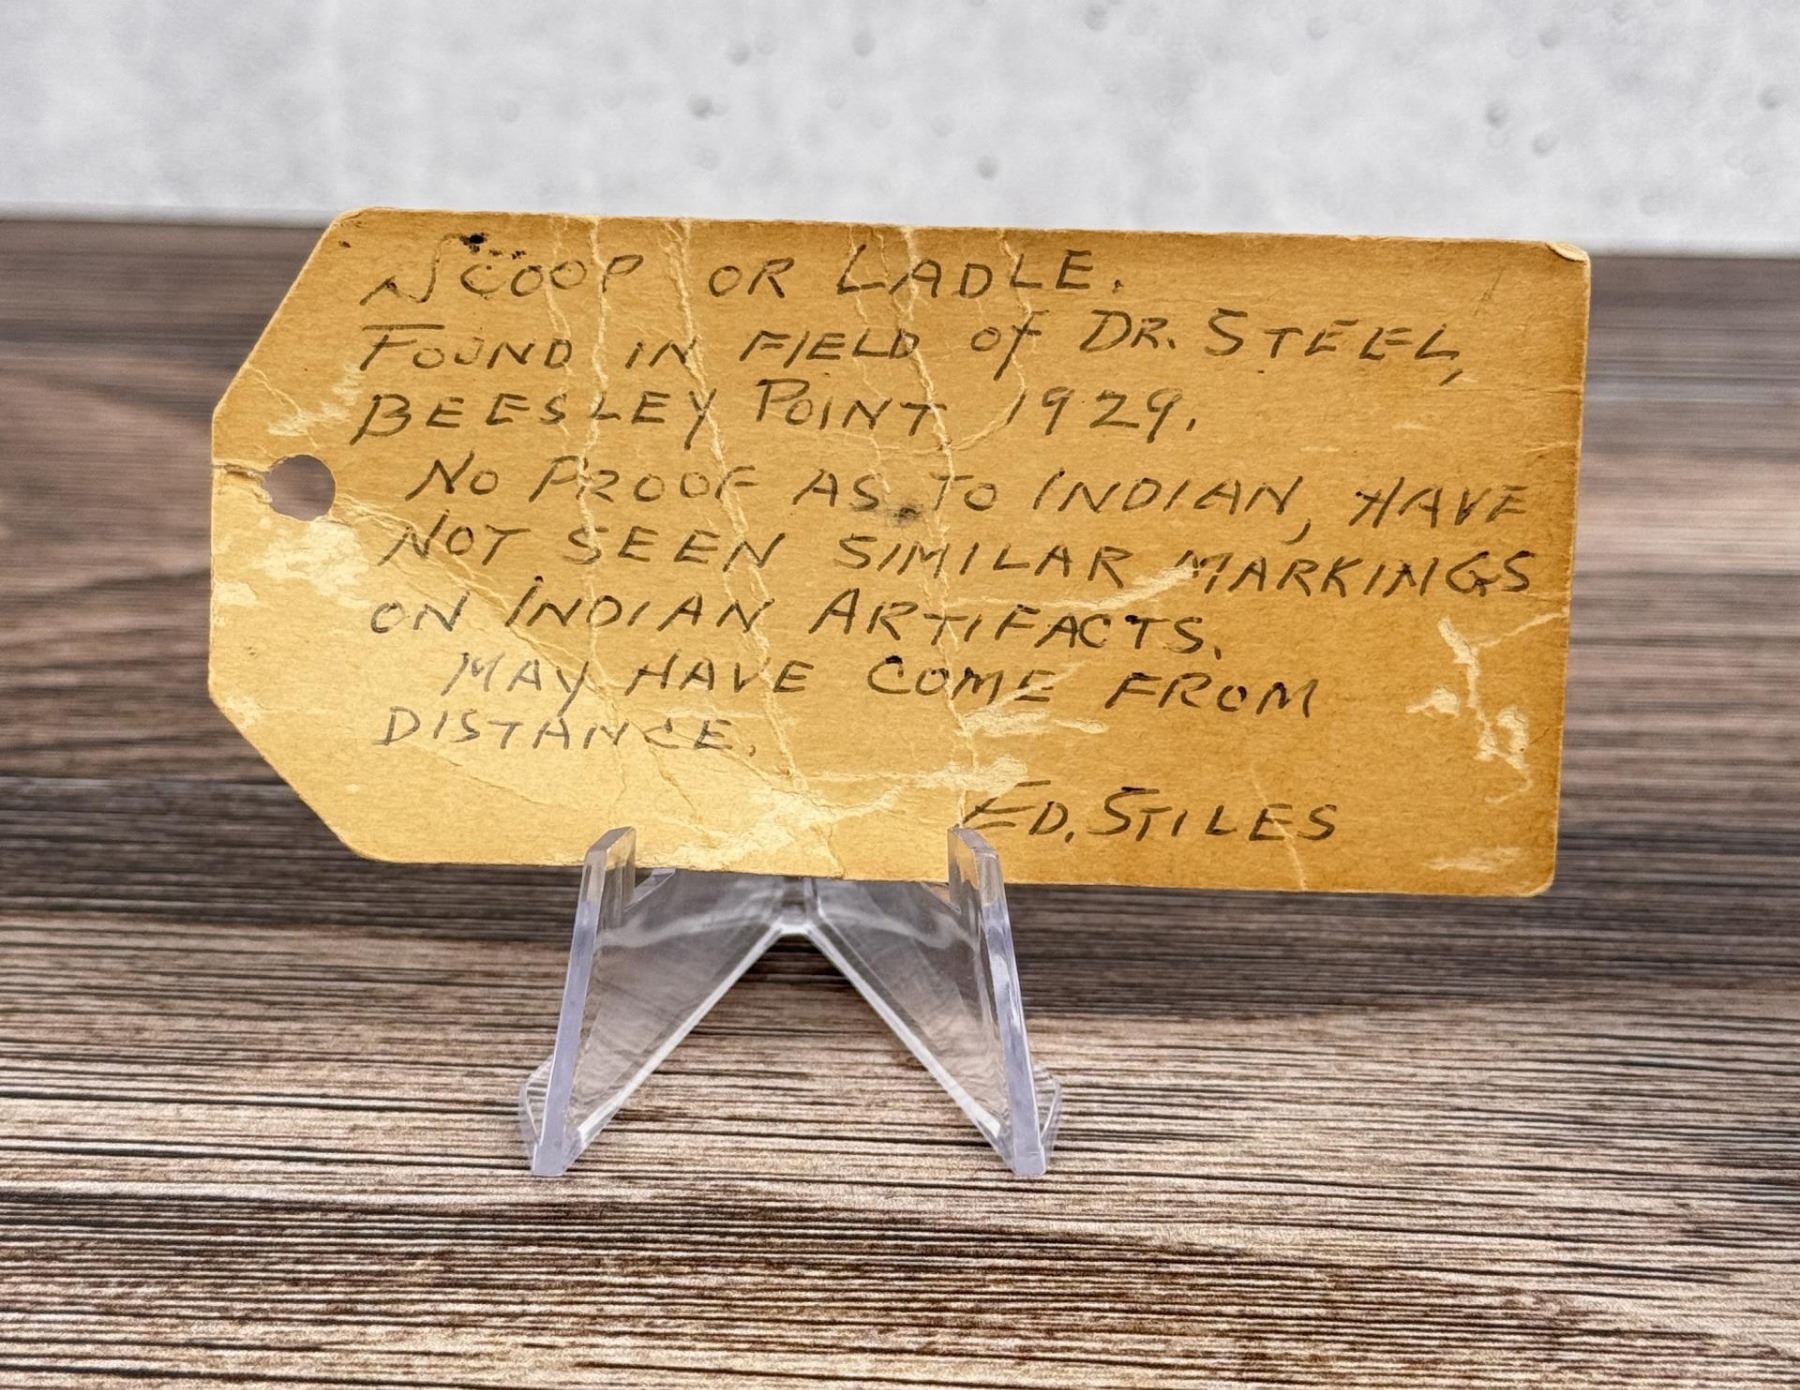 SCOOP OR LADLE.
FOUND IN FIELD of DR. STEEL,
BEESLEY POINT 1929.
NO PROOF AS TO INDIAN, HAVE
NOT SEEN SIMILAR MARKINGS
ON INDIAN ARTIFACTS.
MAY HAVE COME FROM
DISTANCE.
ED. STILES